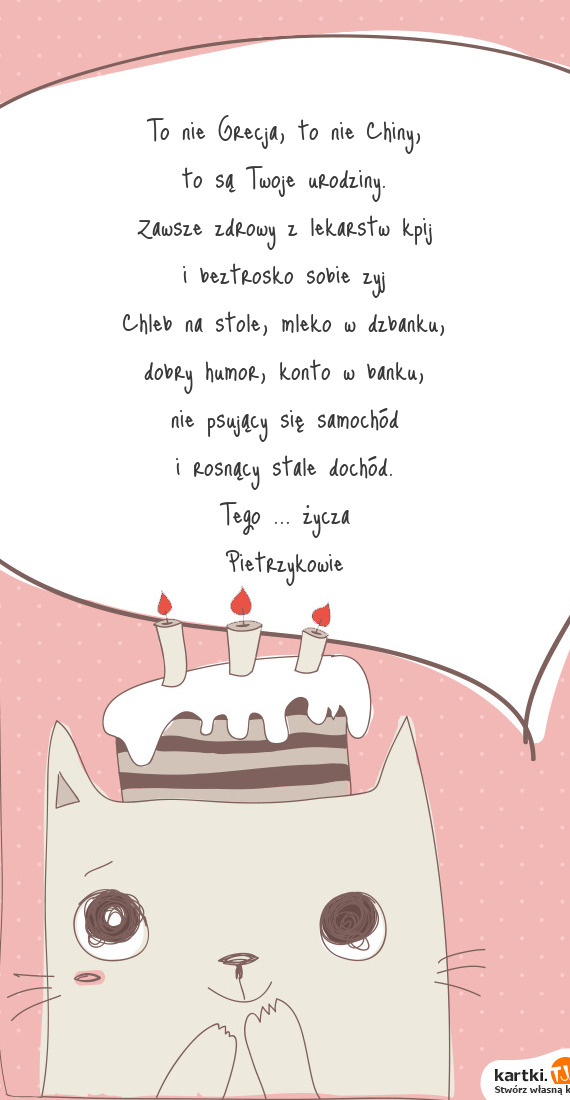 To nie Grecja, to nie Chiny,
to są Twoje urodziny.
Zawsze zdrowy z lekarstw kpij
i beztrosko sobie zyj
Chleb na stole, mleko w dzbanku,
dobry humor, konto w banku,
nie psujący się samochód
i rosnący stale dochód.
Tego ... życza
Pietrzykowie
kartki.TJ
Stwórz własną k